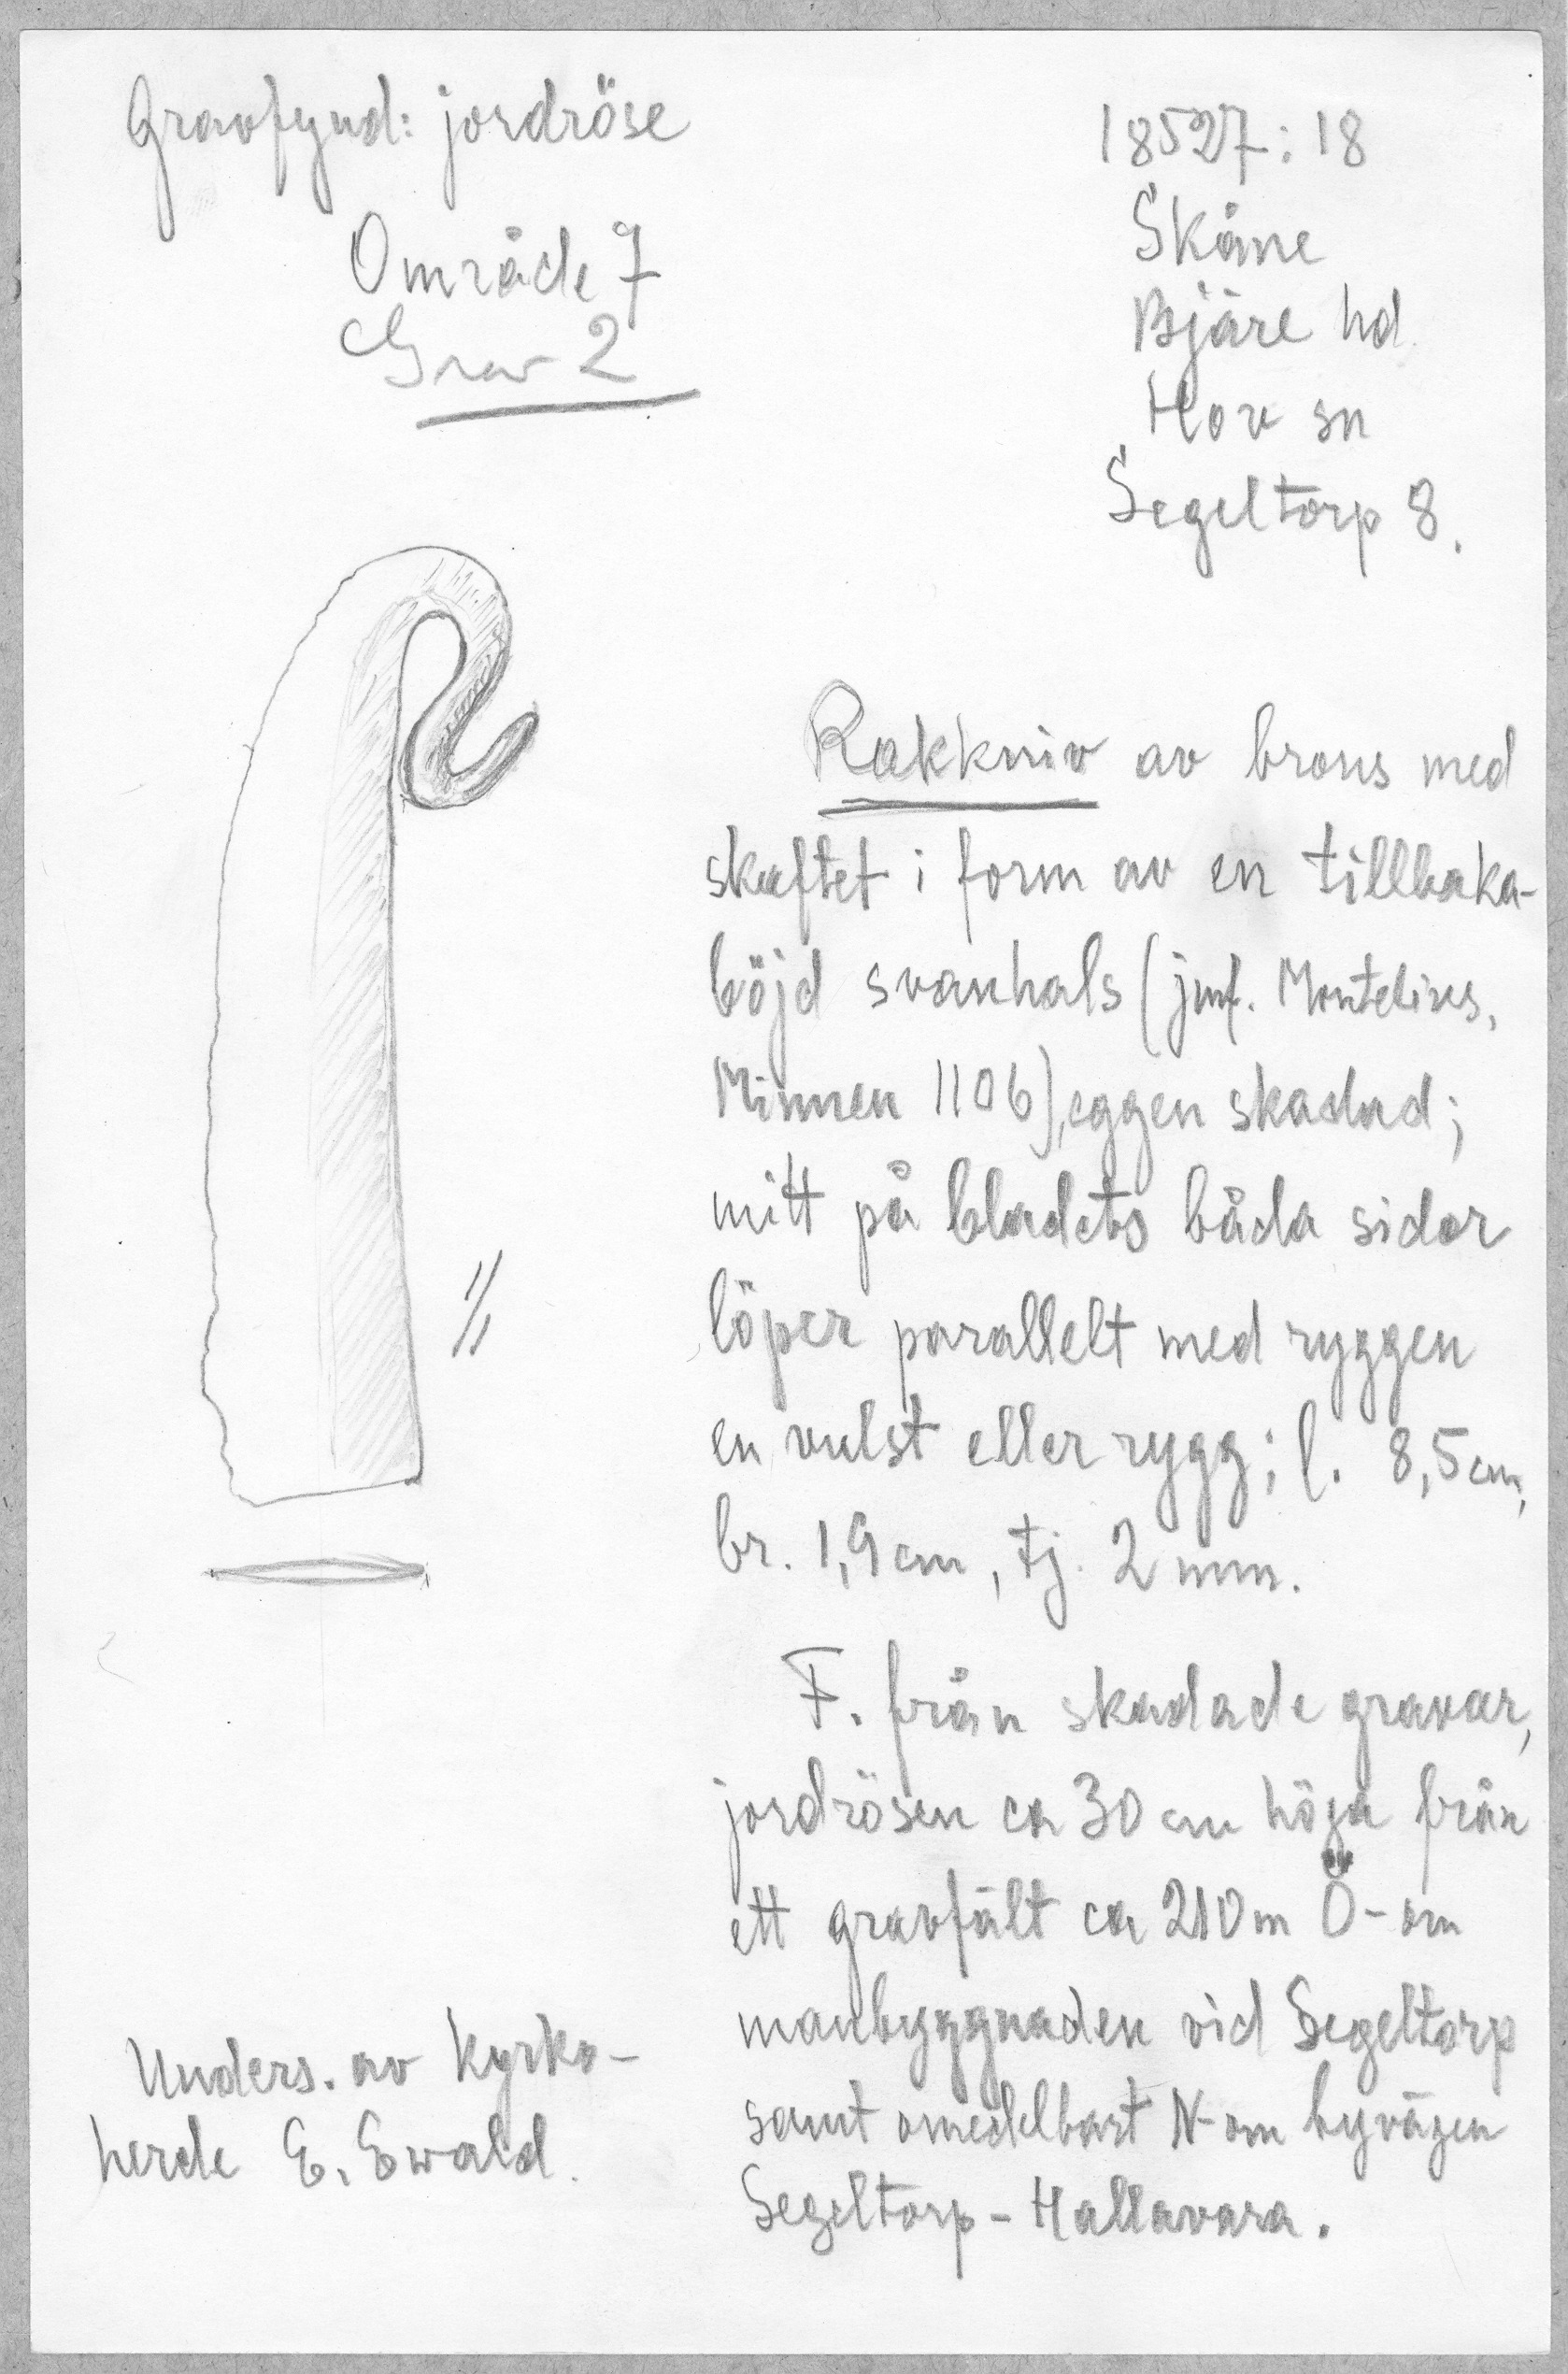 Gravfynd: jordröse
Område 7
Grav 2
18527:18
Skåne
Bjäre hd.
Hov sn
Segeltorp 8.
1/1
Rakkniv av brons med
skaftet i form av en tillbaka-
böjd svanhals (jmf. Montelius,
Minnen 1106), eggen skadad;
mitt på bladets båda sidor
löper parallelt med ryggen
en vulst eller rygg; l. 8,5 cm,
br. 1,9 cm, tj. 2 mm.
F. från skadade gravar,
jordrösen ca 30 cm höga från
ett gravfält ca 210 m Ö-om
manbyggnaden vid Segeltorp
samt omedelbart N-om byvägen
Segeltorp - Hallavara.
Unders. av Kyrko-
herde E. Ewald.